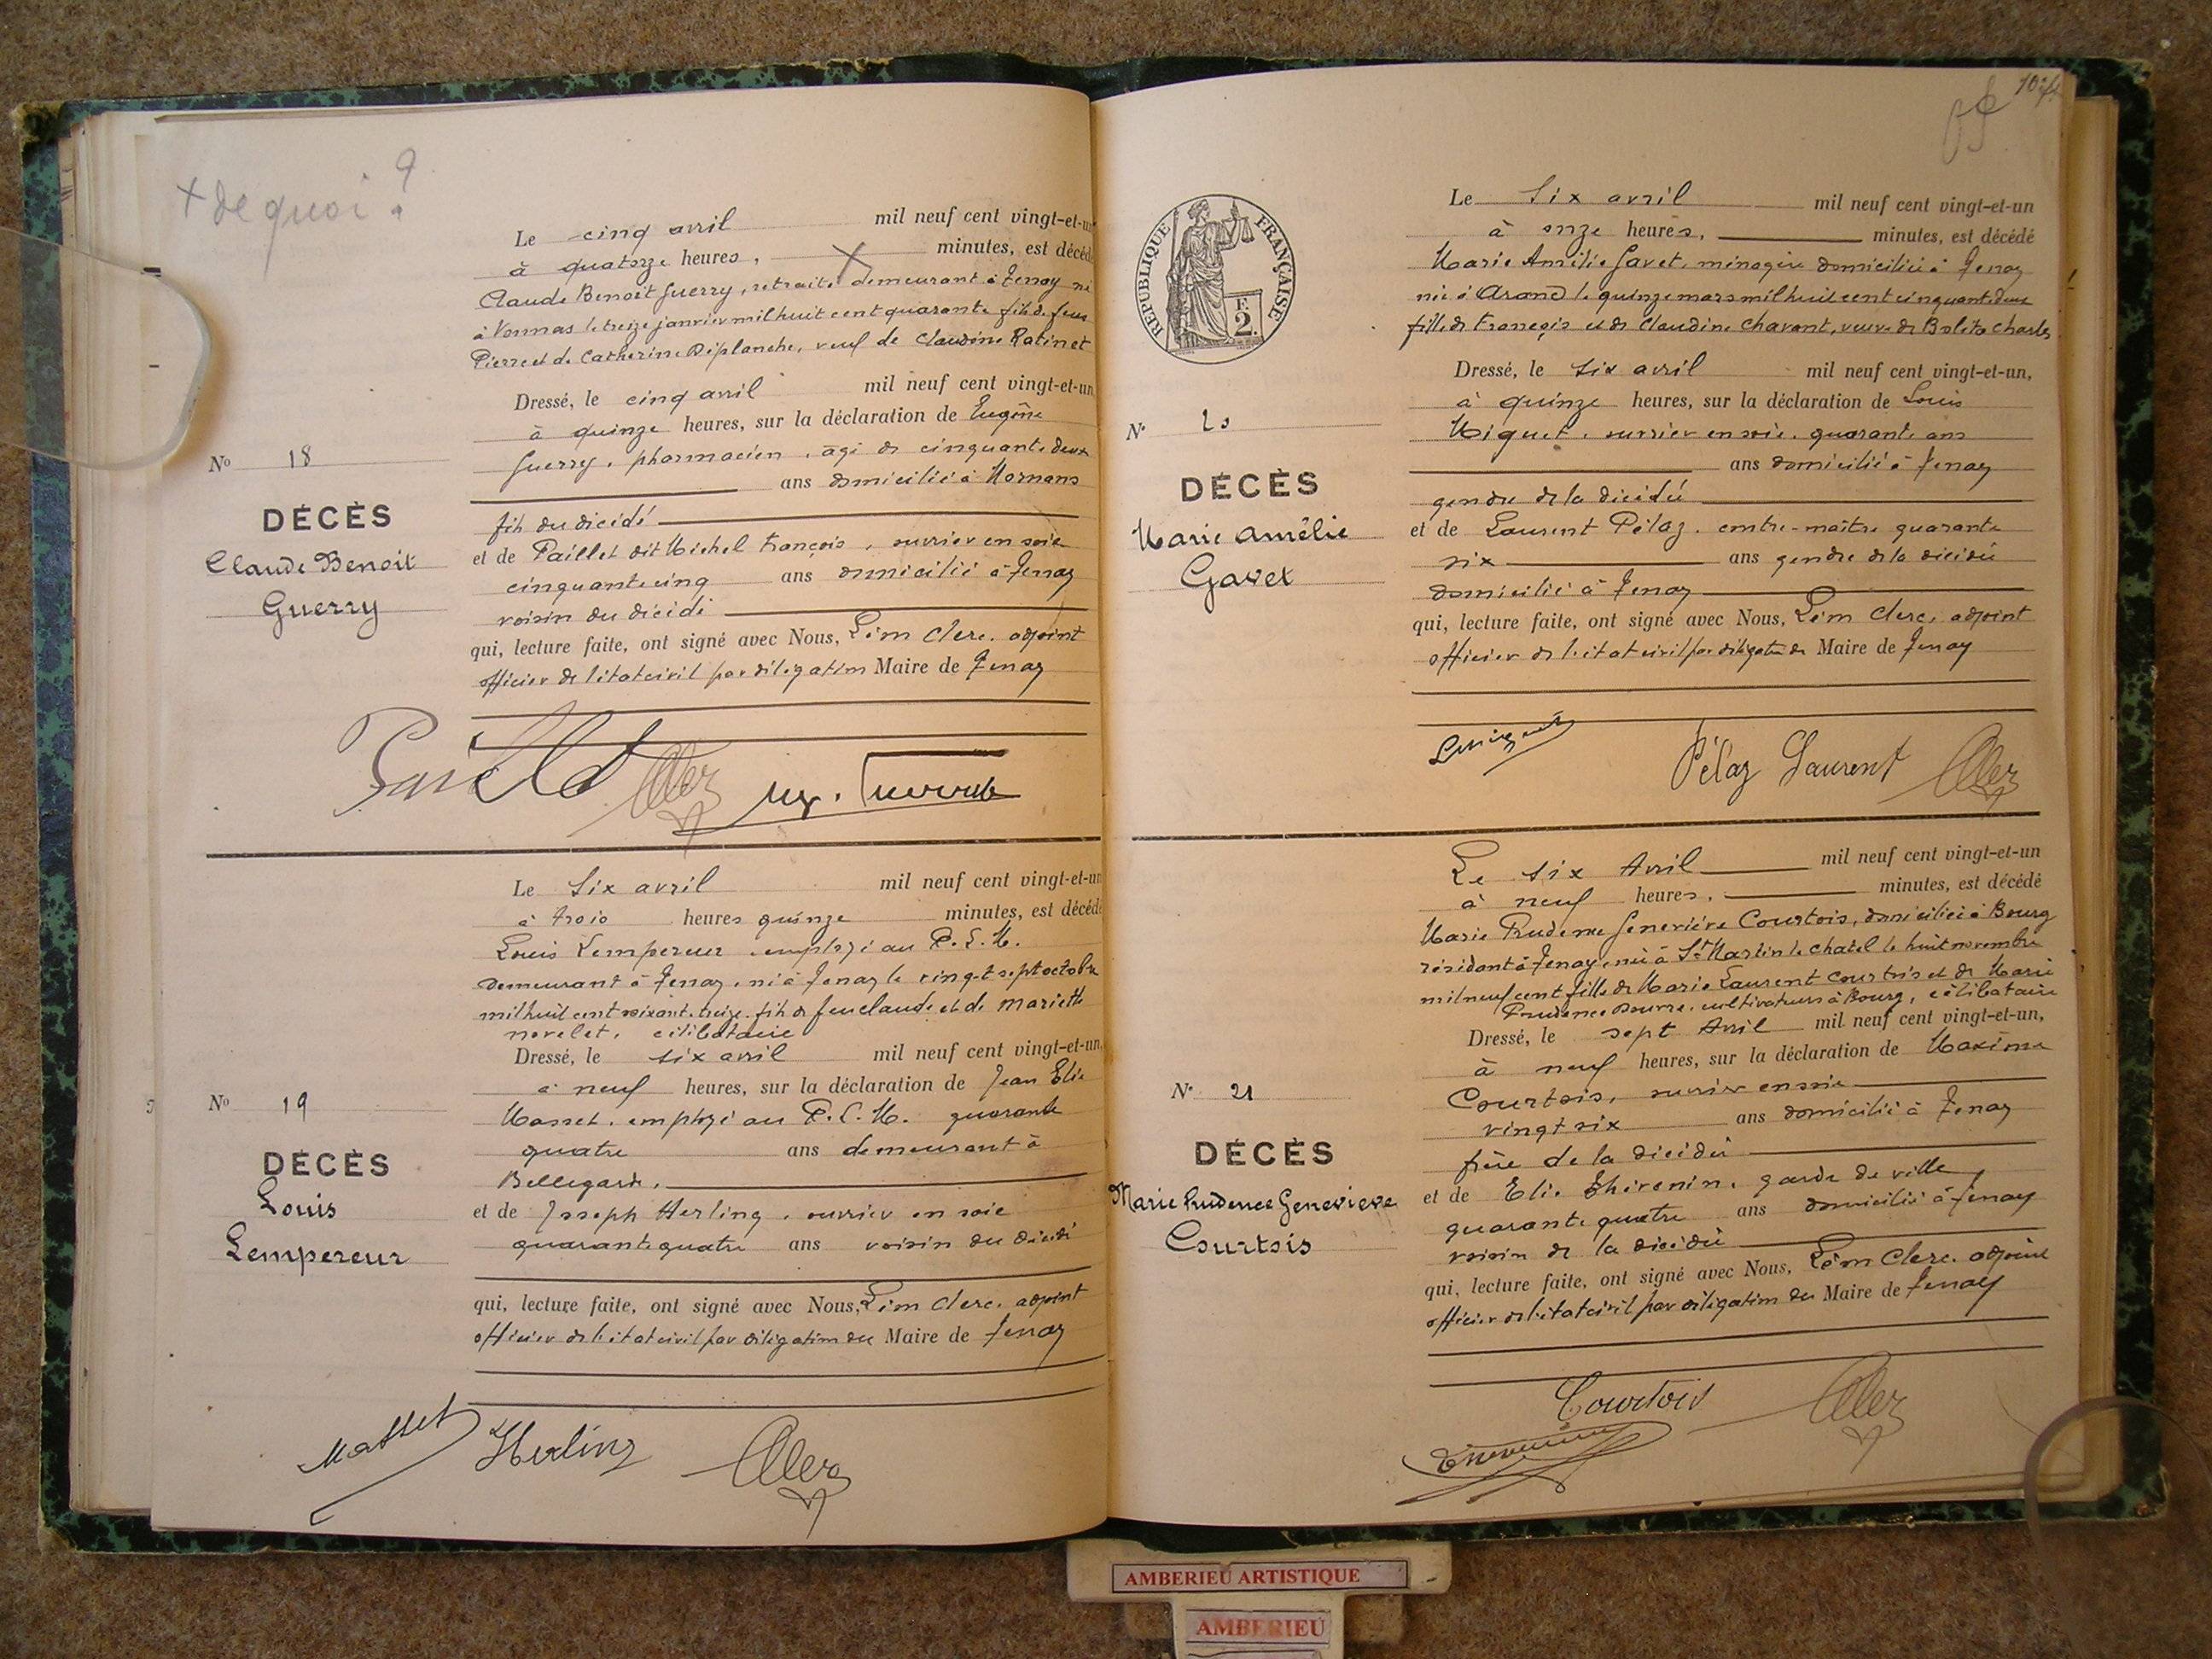 + de quoi ?
Le cinq avril mil neuf cent vingt-et-un
à quatorze heures, minutes, est décédé
Claude Benoit Guerry, retraité demeurant à Tenay né
à Vonnas le treize janvier mil huit cent quarante fils de feus
Pierre et de Catherine Déplanche, veuf de Claudine Ratinet
Dressé, le cinq avril mil neuf cent vingt-et-un
à quinze heures, sur la déclaration de Eugène
Guerry, pharmacien, âgé de cinquante deux
ans domicilié à Mornans
No 18
DÉCÈS
Claude Benoit
Guerry
fils du décédé
et de Paillet dit Michel François, ouvrier en soie
cinquante cinq ans domicilié à Tenay
voisin du décédé
qui, lecture faite, ont signé avec Nous, Léon Clerc, adjoint
officier de l'état civil par délégation Maire de Tenay
Le Six avril mil neuf cent vingt-et-un
à trois heures quinze minutes, est décédé
Louis Lempereur employé au P. L. M.
demeurant à Tenay, né à Tenay le vingt sept octobre
mil huit cent soixante treize fils de feu Claude et de Mariette
novelet, célibataire
Dressé, le six avril mil neuf cent vingt-et-un,
à neuf heures, sur la déclaration de Jean Elie
Masset, employé au P. L. M. quarante
quatre ans demeurant à
Bellegarde,
No 19
DÉCÈS
Louis
Lempereur
et de Joseph Herling, ouvrier en soie
quarante quatre ans voisin du décédé
qui, lecture faite, ont signé avec Nous, Léon Clerc, adjoint
officier de l'état civil par délégation du Maire de Tenay
Masset Herling Clerc
Le Six avril mil neuf cent vingt-et-un
à onze heures, minutes, est décédé
Marie Amélie Gavet, ménagère domiciliée à Tenay
née à Arand le quinze mars mil huit cent cinquante deux
fille de François et de Claudine Chavant, veuve de Bolito Charles
RÉPUBLIQUE FRANÇAISE
F.
2.
Dressé, le six avril mil neuf cent vingt-et-un,
à quinze heures, sur la déclaration de Louis
Miguet, ouvrier en soie, quarante ans
ans domicilié à Tenay
No 20
DÉCÈS
Marie Amélie
Gavet
gendre de la décédée
et de Laurent Pélaz, contre-maître quarante
six ans gendre de la décédée
domicilié à Tenay
qui, lecture faite, ont signé avec Nous, Léon Clerc, adjoint
officier de l'état civil par délégation du Maire de Tenay
Pélaz Laurent Clerc
Le six Avril mil neuf cent vingt-et-un
à neuf heures, minutes, est décédé
Marie Prudence Geneviève Courtois, domiciliée à Bourg
résidant à Tenay, née à St Martin le chatel le huit novembre
mil neuf cent fille de Marie Laurent Courtois et de Marie
Prudence Bourre, cultivateurs à Bourg, célibataire
Dressé, le sept Avril mil neuf cent vingt-et-un,
à neuf heures, sur la déclaration de Maxime
Courtois, ouvrier en soie
vingt six ans domicilié à Tenay
No 21
DÉCÈS
Marie Prudence Genevieve
Courtois
frère de la décédée
et de Elie Thévenin, garde de ville
quarante quatre ans domicilié à Tenay
voisin de la décédée
qui, lecture faite, ont signé avec Nous, Léon Clerc, adjoint
officier de l'état civil par délégation du Maire de Tenay
Courtois Clerc
AMBERIEU ARTISTIQUE
AMBERIEU